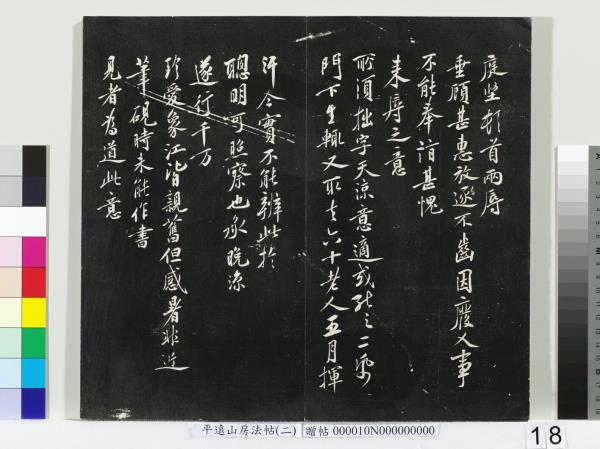 庭堅頓首兩辱
垂顧甚惠放逐不齒因廢人事
不能奉詣甚愧
來辱之意
所須拙字天涼意適或能之二
門下生輒又取去六十老人五月揮
汗今實不能辦此於
聰明可照察也承晚涼
遂行千万
珍愛象江皆親舊但盛暑非近
筆硯時未能作書
見者為道此意
平遠山房法帖(二)
贈帖 000010N000000000
18